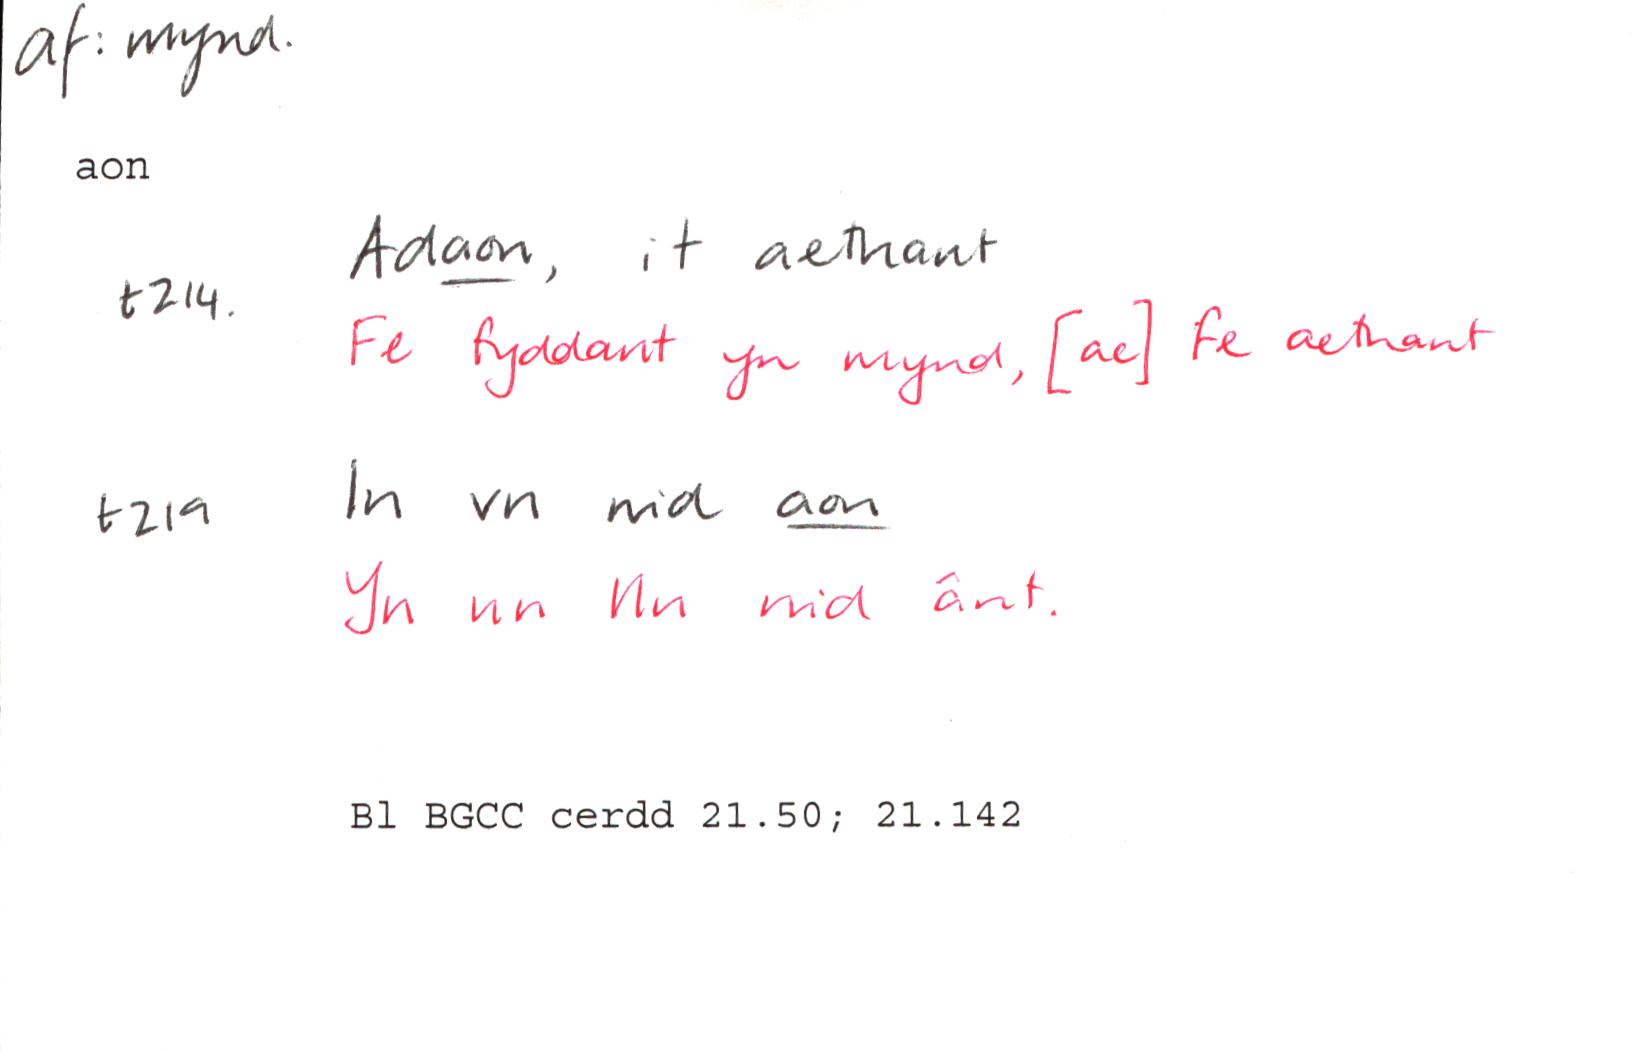 af: mynd.
aon
Adaon, it aethant
t214.
Fe fyddant yn mynd, [ac] fe aethant
t219 In vn nid aon
Yn un llu nid ânt.
Bl BGCC cerdd 21.50; 21.142